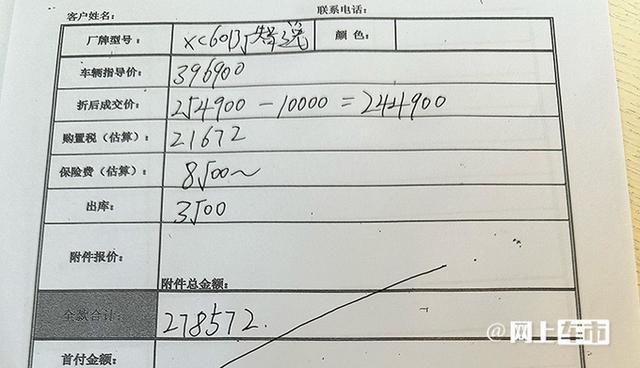 客户姓名: 联系电话:
厂牌型号: XC60 B5 智逸 颜色:
车辆指导价: 396900
折后成交价: 254900 - 10000 = 244900
购置税（估算）: 21672
保险费（估算）: 8500~
出库: 3500
附件报价:
附件总金额:
全款合计: 278572.
首付金额:
@网上车市